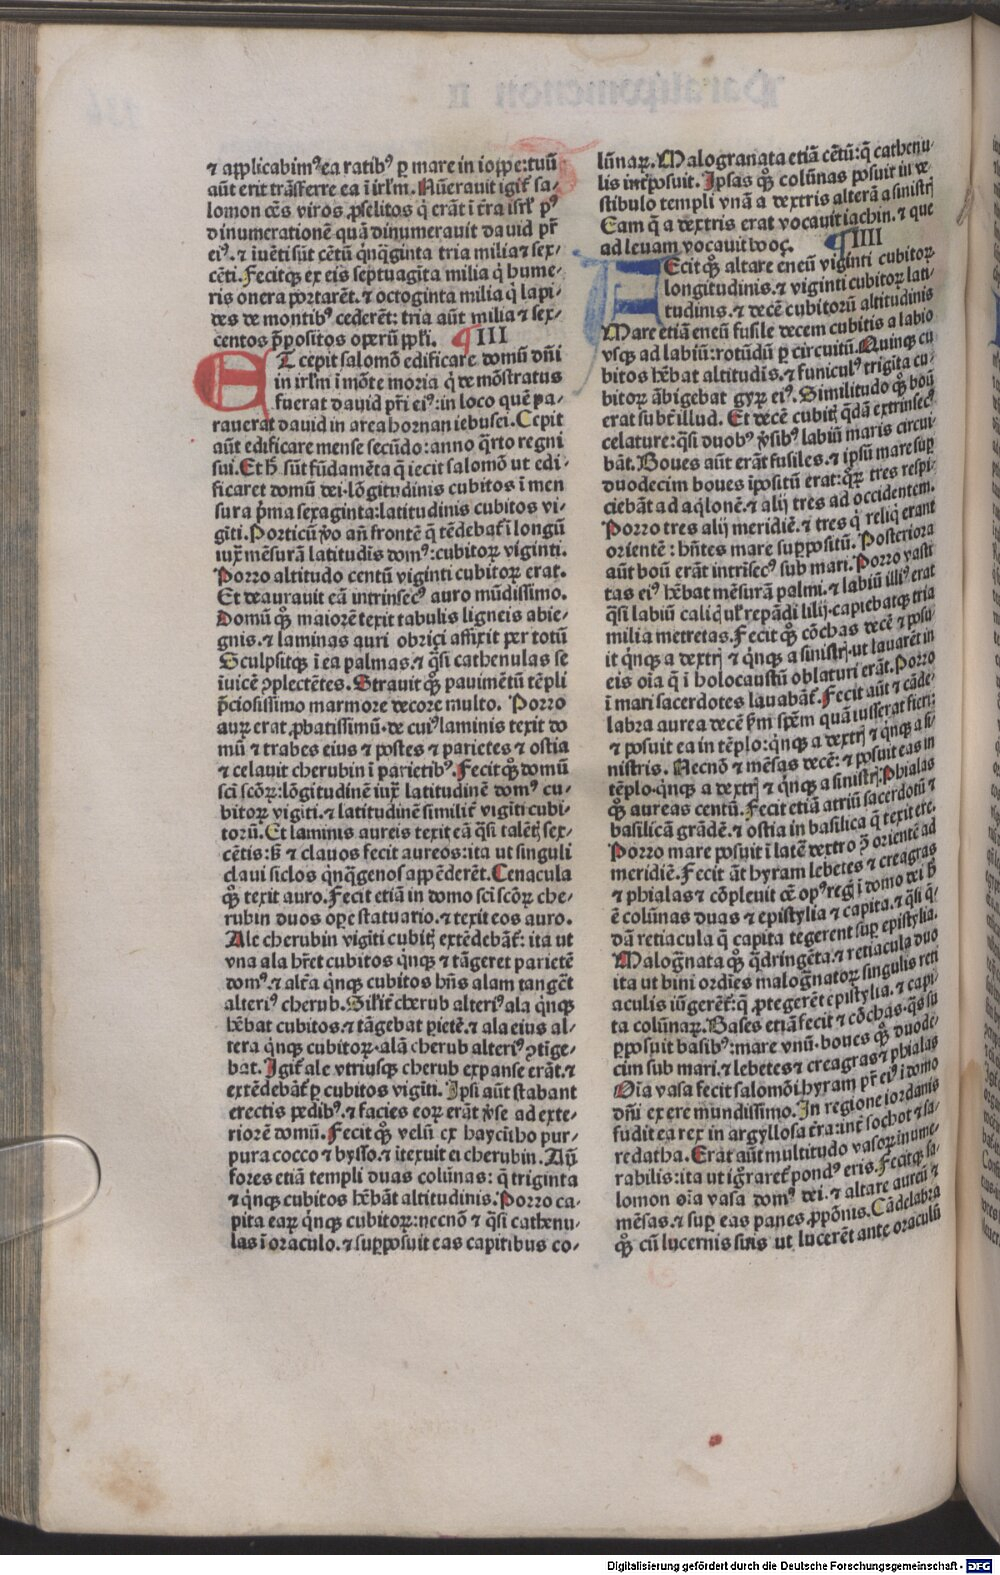 ⁊ applicabimꝰ ea ratibꝰ ꝑ mare in ioppe: tuū
aūt erit trāsferre ea ī irl̄m. Nūeravit igit᷑ sa⸗
lomon oēs viros ꝓselitos q̇ erāt ī t̄ra isrl̄ pꝰ
dinumerationē quā dinumeravit dauid pr̄
eiꝰ. ⁊ iuēti sūt cētū q̇nq̄ginta tria milia ⁊ sex⸗
cēti. Fecitqꝫ ex eis septuagīta milia q̇ hume⸗
ris onera portarēt. ⁊ octoginta milia q̇ lapi⸗
des de montibꝰ cederēt: tria aūt milia ⁊ sex⸗
centos p̄positos operū ppl̄i. ¶ III
ET cepit salomō edificare domū dn̄i
in irl̄m ī mōte moria q̇ demōstratus
fuerat dauid pr̄i eiꝰ: in loco quē pa⸗
rauerat dauid in area hornan iebusei. Cepit
aūt edificare mense secūdo: anno q̄rto regni
sui. Et h̄ sūt fūdamēta q̄ iecit salomō ut edi⸗
ficaret domū dei. lōgitudinis cubitos ī men
sura p̄ma sexaginta: latitudinis cubitos vi⸗
gīti. Porticū v̊o an̄ frontē q̄ tēdebat᷑ ī longū
iux̄ mēsurā latitudīs domꝰ: cubitoꝝ viginti.
Porro altitudo centū viginti cubitoꝝ erat.
Et deaurauit eā intrinsecꝰ auro mūdissimo.
Domū qꝫ maiorē texit tabulis ligneis abie⸗
gnis. ⁊ laminas auri obrizi affixit per totū
Sculpsitqꝫ ī ea palmas. ⁊ q̄si cathenulas se
īuicē ꝯplectētes. Strauit qꝫ pauimētū tēpli
p̄ciosissimo marmore decore multo. Porro
auꝝ erat ꝓbatissimū. de cuiꝰ laminis texit do
mū ⁊ trabes eius ⁊ postes ⁊ parietes ⁊ ostia
⁊ celauit cherubin ī parietibꝰ. Fecit qꝫ domū
sci scōꝝ: lōgitudinē iux̄ latitudinē domꝰ cu⸗
bitoꝝ vigīti. ⁊ latitudinē similit᷑ vigīti cubi⸗
torū. Et laminis aureis texit eā q̄si talētꝭ sex⸗
cētis: sꝫ ⁊ clauos fecit aureos: ita ut singuli
claui siclos q̇nq̄genos appēderēt. Cenacula
qꝫ texit auro. Fecit etiā in domo sci scōꝝ che⸗
rubin duos oꝑe statuario. ⁊ texit eos auro.
Ale cherubin vigīti cubitꝭ extēdebāt᷑: ita ut
vna ala hr̄et cubitos q̇nqꝫ ⁊ tāgeret parietē
domꝰ. ⁊ alt᷑a q̇nqꝫ cubitos hn̄s alam tangēt
alteriꝰ cherub. Silit᷑ cherub alteriꝰ ala q̇nqꝫ
hēbat cubitos. ⁊ tāgebat ꝑietē. ⁊ ala eius al⸗
tera q̇nqꝫ cubitoꝝ. alā cherub alteriꝰ ꝯtīge⸗
bat. Igit᷑ ale vtriusqꝫ cherub expanse erāt. ⁊
extēdebāt᷑ ꝑ cubitos vigīti. Ipsi aūt stabant
erectis pedibꝰ. ⁊ facies eoꝝ erāt v̊se ad exte⸗
riorē domū. Fecit qꝫ velū ex hayctīho pur⸗
pura cocco ⁊ bysso. ⁊ ītexuit ei cherubin. An̄
fores etiā templi duas colūnas: q̄ triginta
⁊ q̇nqꝫ cubitos hēbāt altitudinis. Porro ca⸗
pita eaꝝ q̇nqꝫ cubitoꝝ: necnō ⁊ q̄si cathenu⸗
las ī oraculo. ⁊ suꝑposuit eas capitibus co⸗
lūnaꝝ. Malogranata etiā cētū: q̄ cathenu⸗
lis int᷑posuit. Ipsas qꝫ colūnas posuit in ve⸗
stibulo templi vnā a dextris alterā a sinistrꝭ
Eam q̄ a dextris erat vocauit iachin. ⁊ que
ad leuam vocauit booꝫ. ¶ IIII
FEcit qꝫ altare eneū viginti cubitoꝝ
longitudinis. ⁊ viginti cubitoꝝ lati⸗
tudinis. ⁊ decē cubitorū altitudinis
Mare etiā eneū fusile decem cubitis a labio
vsqꝫ ad labiū: rotūdū ꝑ circuitū. Quinqꝫ cu⸗
bitos hēbat altitudīs. ⁊ funiculꝰ trigīta cu⸗
bitoꝝ ābigebat gyꝝ eiꝰ. Similitudo qꝫ boū
erat subt᷑ illud. Et decē cubitꝭ q̄dā extrinsecꝰ
celature: q̄si duobꝰ v̊sibꝰ labiū maris circui⸗
bāt. Boues aūt erāt fusiles. ⁊ ipsū mare suꝑ
duodecim boues īpositū erat: q̄ꝝ tres respi⸗
ciebāt ad aq̇lonē. ⁊ alij tres ad occidentem.
Porro tres alij meridiē. ⁊ tres q̇ reliq̇ erant
orientē: hn̄tes mare suꝑpositū. Posteriora
aūt boū erāt intrīsecꝰ sub mari. Porro vasti
tas eiꝰ hēbat mēsurā palmi. ⁊ labiū illiꝰ erat
q̄si labiū calicꝭ ul̓ repādi lilij. capiebatqꝫ tria
milia metretas. Fecit qꝫ cōchas decē ⁊ posu
it q̇nqꝫ a dextrꝭ ⁊ q̇nqꝫ a sinistrꝭ. ut lauarēt in
eis oīa q̄ ī holocaustū oblaturi erāt. Porro
ī mari sacerdotes lauabāt᷑. Fecit aūt ⁊ cāde⸗
labra aurea decē ẜm spēm quā iusserat fieri:
⁊ posuit ea in tēplo: q̇nqꝫ a dextrꝭ ⁊ q̇nqꝫ a si⸗
nistris. Necnō ⁊ mēsas decē: ⁊ posuit eas in
tēplo. q̇nqꝫ a dextrꝭ ⁊ q̇nqꝫ a sinistrꝭ. Phialas
qꝫ aureas centū. Fecit etiā atriū sacerdotū ⁊
basilicā grādē. ⁊ ostia in basilica q̄ texit ere.
Porro mare posuit ī latē dextro ꝯ̄ orientē ad
meridiē. Fecit āt hyram lebetes ⁊ creagras
⁊ phialas ⁊ cōpleuit oē opꝰ regꝭ ī domo dei h̄
ē colūnas duas ⁊ epistylia ⁊ capita. ⁊ q̄si q̄⸗
dā retiacula q̄ capita tegerent suꝑ epistylia.
Malogn̄ata qꝫ q̄dringēta. ⁊ retiacula duo
ita ut bini ordīes malogn̄atoꝝ singulis reti
aculis iūgerēt᷑: q̄ ꝓtegerēt epistylia. ⁊ capi⸗
ta colūnaꝝ. Bases etiā fecit ⁊ cōchas. q̄s su
ꝑposuit basibꝰ: mare vnū. boues qꝫ duode⸗
cim sub mari. ⁊ lebetes ⁊ creagras ⁊ phialas
Oīa vasa fecit salomōi hyram pr̄ eiꝰ ī domo
dn̄i ex ere mundissimo. In regione iordanis
fudit ea rex in argyllosa t̄ra: int᷑ sochot ⁊ sa⸗
redatha. Erat aūt multitudo vasoꝝ inume⸗
rabilis: ita ut igr̄aret᷑ pondꝰ eris. Fecitqꝫ sa⸗
lomon oīa vasa domꝰ dei. ⁊ altare aureū ⁊
mēsas. ⁊ suꝑ eas panes ꝓpōnis. Cādelabra
qꝫ cū lucernis suis ut lucerēt ante oraculū
Digitalisierung gefördert durch die Deutsche Forschungsgemeinschaft - DFG